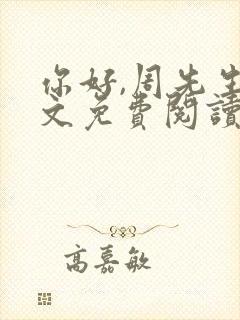 你好,周先生
文免费閱讀
高嘉敏